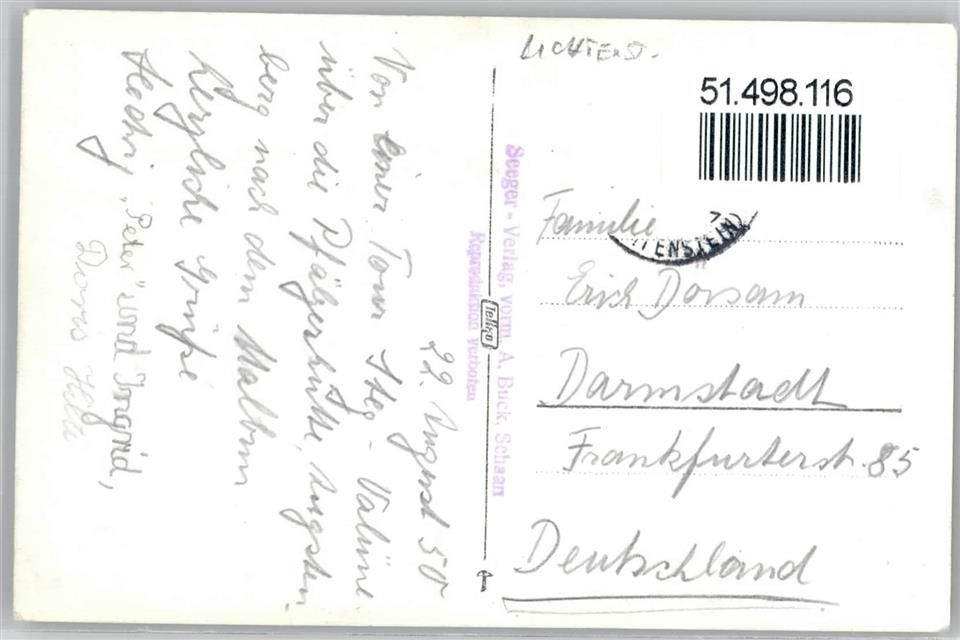 LICHTENST.
51.498.116
TENSTEIN)
Familie
Erich Dorsam
Darmstadt
Frankfurterstr. 85
Deutschland
Seeger - Verlag, vorm. A. Buck, Schaan
Reproduktion verboten
22. August 50
Von einer Tour Steg - Valüna
über die Pfälzerhütte, Augsten-
berg nach dem Malbun
herzliche Grüße
Hedwig, "Peter" und Ingrid,
Doris